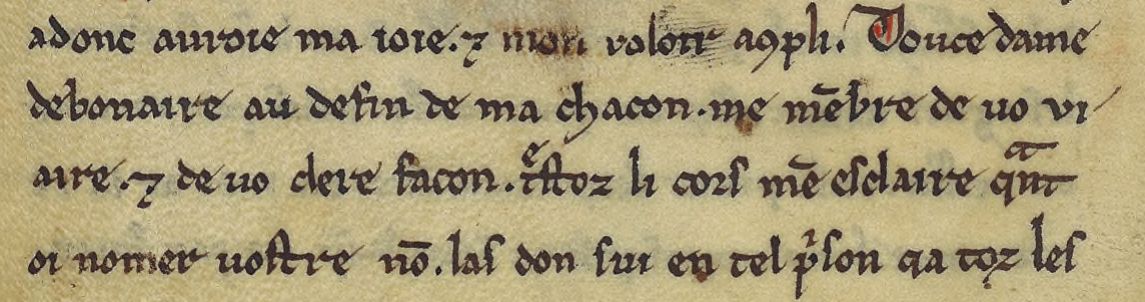 adonc auroie ma ioie. ⁊ mon voloir aꝯpli. Douce dame
debonaire au defin de ma chacon. me mēbre de uo vi
aire. ⁊ de uo clere facon. tͤſtoz li corſ mē eſclaire qᵃnt
oi nomer uoſtre nō. las don ſui en tel pⁱſon qa toz leſ